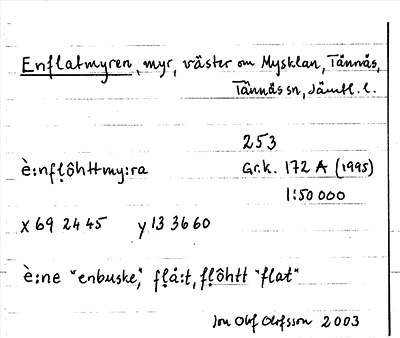 Enflatmyren, myr, väster om Mysklan, Tännäs,
Tännäs sn, Jämtl. l.
253
è:nfḷôhttmy:ra Gr.k. 172 A (1995)
1:50 000
x 69 24 45 y 13 36 60
è:ne "enbuske", fḷå:t, fḷôhtt "flat"
Jon Olof Olofsson 2003